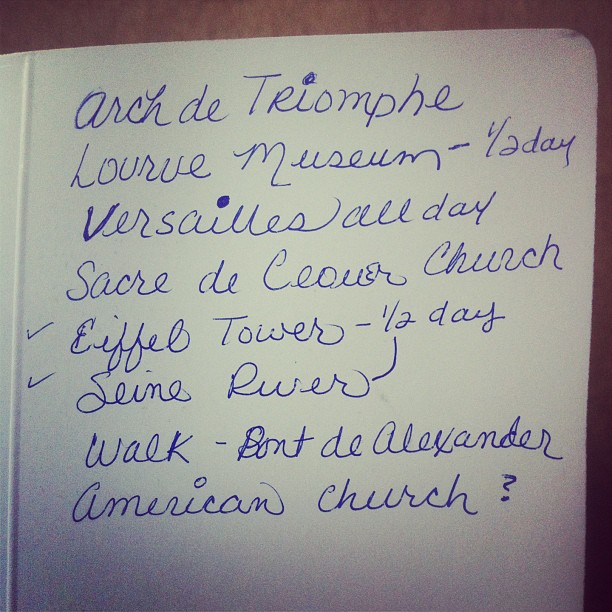 Arch de Triomphe
Lourve Museum - 1/2 day
Versailles all day
Sacre de Ceouer Church
✓ Eiffel Tower - 1/2 day
✓ Seine River
Walk - Pont de Alexander
American Church ?